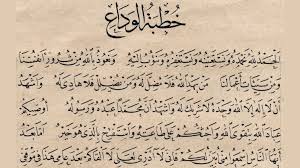 خطبة الوداع
الحمد لله نحمده ونستعينه ونستغفره ونتوب إليه ونعوذ بالله من شرور أنفسنا
ومن سيئات أعمالنا من يهد الله فلا مضل له ومن يضلل فلا هادي له وأشهد
أن لا إله إلا الله وحده لا شريك له وأشهد أن محمدا عبده ورسوله أوصيكم
عباد الله بتقوى الله وأحثكم على طاعته وأستفتح بالذي هو خير أما بعد
أيها الناس اسمعوا مني أبين لكم فإني لا أدري لعلي لا ألقاكم بعد عامي هذا في موقفي